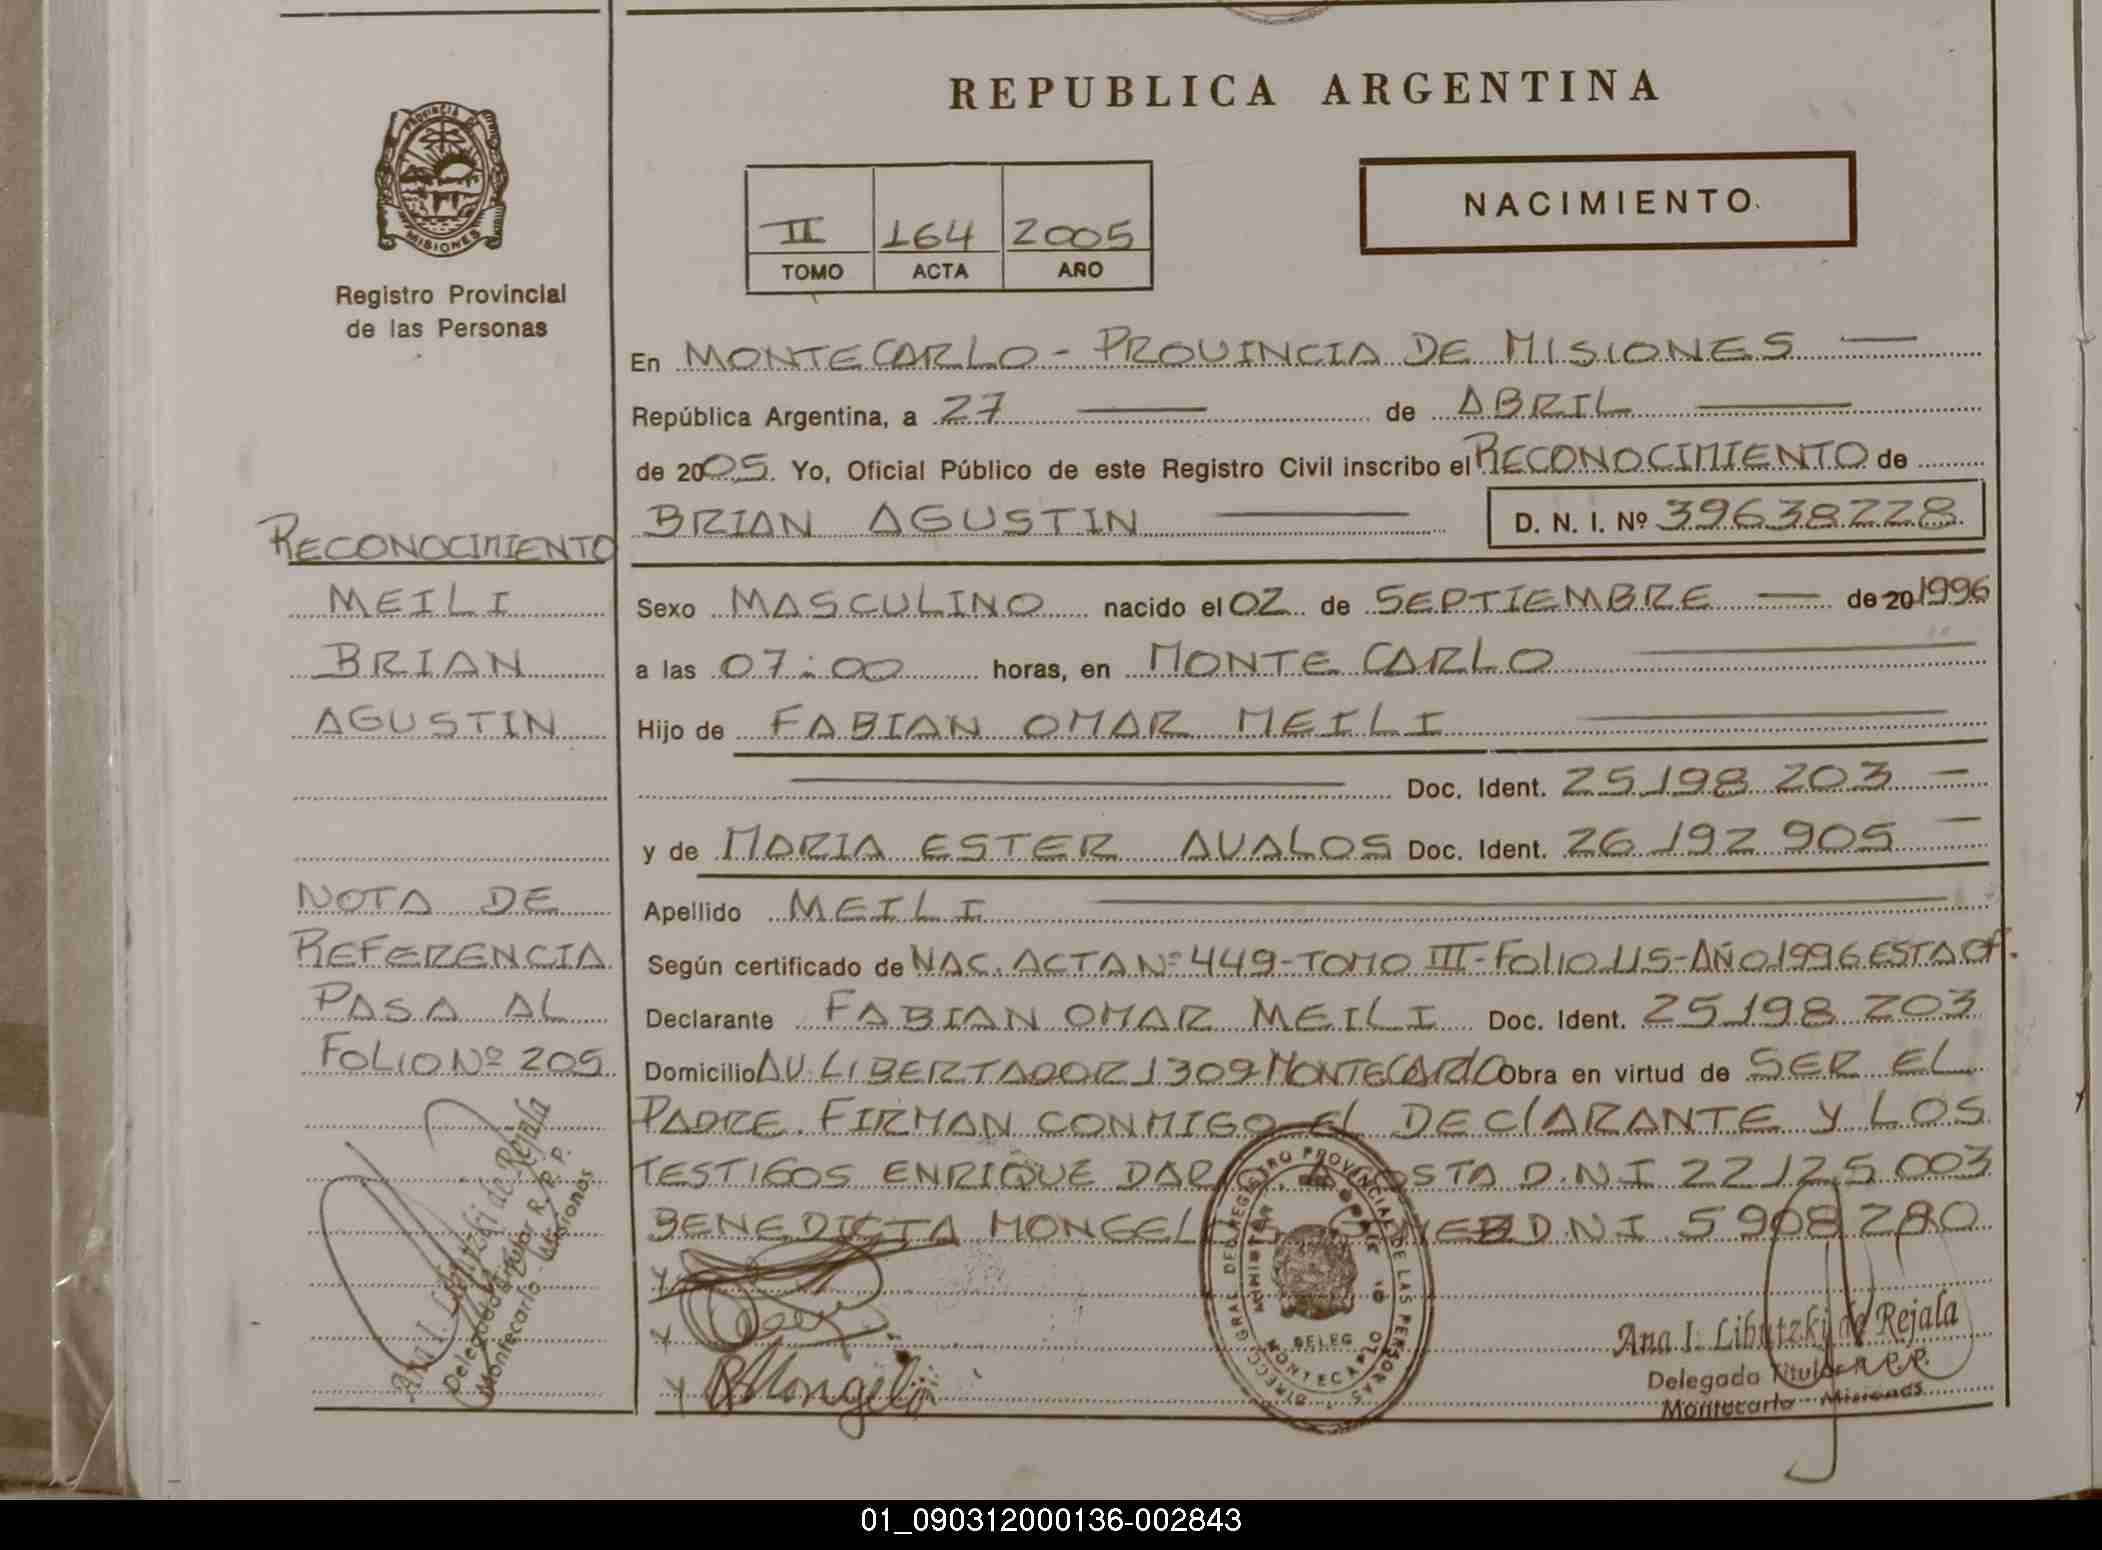 REPUBLICA ARGENTINA
PROVINCIA DE
MISIONES
Registro Provincial
de las Personas
II 164 2005
TOMO ACTA AÑO
NACIMIENTO
En MONTECARLO - PROVINCIA DE MISIONES
República Argentina, a 27 de ABRIL
de 2005. Yo, Oficial Público de este Registro Civil inscribo el RECONOCIMIENTO de
BRIAN AGUSTIN D. N. I. Nº 39638228
Sexo MASCULINO nacido el 02 de SEPTIEMBRE de 20 1996
a las 07:00 horas, en MONTE CARLO
Hijo de FABIAN OMAR MEILI
Doc. Ident. 25 198 203
y de MARIA ESTER AVALOS Doc. Ident. 26 192 905
Apellido MEILI
Según certificado de NAC. ACTA Nº 449-TOMO III-FOLIO 115-AÑO 1996 ESTA OF.
Declarante FABIAN OMAR MEILI Doc. Ident. 25 198 203
Domicilio AV. LIBERTADOR 1309 MONTECARLO Obra en virtud de SER EL
PADRE. FIRMAN CONMIGO EL DECLARANTE Y LOS
TESTIGOS ENRIQUE DARIO ACOSTA D.N.I 22 125 003
BENEDICTA D.N.I 5908 280
RECONOCIMIENTO
MEILI
BRIAN
AGUSTIN
NOTA DE
REFERENCIA
PASA AL
FOLIO Nº 205
Ana I. Libutzki de Rejala
Delegado Titular R. P. P.
Montecarlo - Misiones
DIRECC. GRAL. DEL REGISTRO PROVINCIAL DE LAS PERSONAS
DELEG.
MONTECARLO
Ana I. Libutzki de Rejala
Delegado Titular R. P. P.
Montecarlo - Misiones
01_090312000136-002843